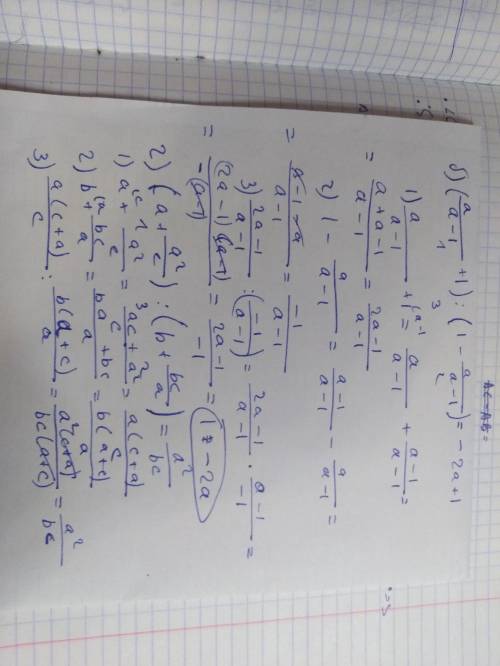 AC = AB =
б) (a/(a-1) + 1) : (1 - a/(a-1)) = -2a+1
1 3 2
1) a/(a-1) + 1^(a-1) = a/(a-1) + (a-1)/(a-1) =
= (a+a-1)/(a-1) = (2a-1)/(a-1)
2) 1 - a/(a-1) = (a-1)/(a-1) - a/(a-1) =
= (a-1-a)/(a-1) = -1/(a-1)
3) (2a-1)/(a-1) : (-1/(a-1)) = (2a-1)/(a-1) · (a-1)/-1 =
= (2a-1)(a-1)/-(a-1) = (2a-1)/-1 = 1-2a
2) (a + a²/c) : (b + bc/a) = a²/bc
1 3 2
1) a^c + a²/c = (ac+a²)/c = a(c+a)/c
2) b^a + bc/a = (ba+bc)/a = b(a+c)/a
3) a(c+a)/c : b(a+c)/a = a²(c+a)/bc(a+c) = a²/bc